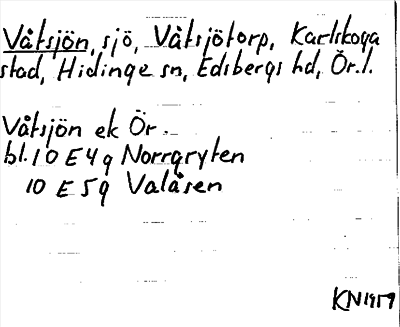 Våtsjön, sjö, Våtsjötorp, Karlskoga
stad, Hidinge sn, Edsbergs hd, Ör. l.
Våtsjön ek Ör.
bl. 10 E 4 g Norrgryten
10 E 5 g Valåsen
KN 1959